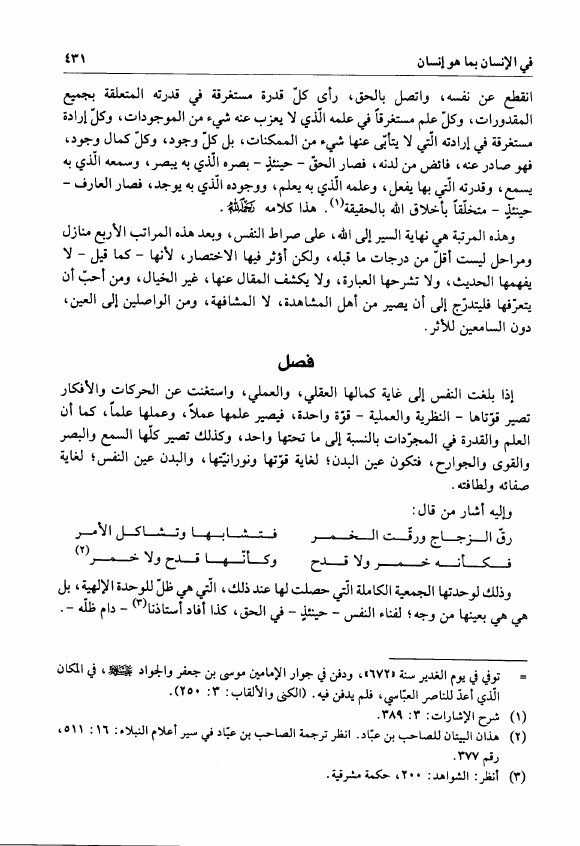 في الإنسان بما هو إنسان
٤٣١
انقطع عن نفسه، واتصل بالحق، رأى كلّ قدرة مستغرقة في قدرته المتعلقة بجميع
المقدورات، وكلّ علم مستغرقاً في علمه الّذي لا يعزب عنه شيء من الموجودات، وكلّ إرادة
مستغرقة في إرادته الّتي لا يتأبّى عنها شيء من الممكنات، بل كلّ وجود، وكلّ كمال وجود،
فهو صادر عنه، فائض من لدنه، فصار الحقّ - حينئذٍ - بصره الّذي به يبصر، وسمعه الّذي به
يسمع، وقدرته الّتي بها يفعل، وعلمه الّذي به يعلم، ووجوده الّذي به يوجد، فصار العارف -
حينئذٍ - متخلّقاً بأخلاق الله بالحقيقة(١). هذا كلامه رَحِمَهُ اللهُ.
وهذه المرتبة هي نهاية السير إلى الله، على صراط النفس، وبعد هذه المراتب الأربع منازل
ومراحل ليست أقلّ من درجات ما قبله، ولكن أؤثر فيها الاختصار، لأنها - كما قيل - لا
يفهمها الحديث، ولا تشرحها العبارة، ولا يكشف المقال عنها، غير الخيال، ومن أحبّ أن
يتعرّفها فليتدرّج إلى أن يصير من أهل المشاهدة، لا المشافهة، ومن الواصلين إلى العين،
دون السامعين للأثر.
فصل
إذا بلغت النفس إلى غاية كمالها العقلي، والعملي، واستغنت عن الحركات والأفكار
تصير قوّتاها - النظرية والعملية - قوّة واحدة، فيصير علمها عملاً، وعملها علماً، كما أن
العلم والقدرة في المجرّدات بالنسبة إلى ما تحتها واحد، وكذلك تصير كلّها السمع والبصر
والقوى والجوارح، فتكون عين البدن؛ لغاية قوّتها ونورانيّتها، والبدن عين النفس؛ لغاية
صفائه ولطافته.
وإليه أشار من قال:
رقّ الـزجـاج ورقّـت الـخـمـر فـتـشـابـهـا وتـشـاكـل الأمـر
فـكـأنـه خـمـر ولا قـدح وكـأنّـهـا قـدح ولا خـمـر(٢)
وذلك لوحدتها الجمعية الكاملة الّتي حصلت لها عند ذلك، الّتي هي ظلّ للوحدة الإلهية، بل
هي هي بعينها من وجه؛ لفناء النفس - حينئذٍ - في الحق، كذا أفاد أستاذنا(٣) - دام ظلّه -.
= توفي في يوم الغدير سنة «٦٧٢»، ودفن في جوار الإمامين موسى بن جعفر والجواد عليهما السلام، في المكان
الّذي أعدّ للناصر العبّاسي، فلم يدفن فيه. (الكنى والألقاب: ٣: ٢٥٠).
(١) شرح الإشارات: ٣: ٣٨٩.
(٢) هذان البيتان للصاحب بن عبّاد. انظر ترجمة الصاحب بن عبّاد في سير أعلام النبلاء: ١٦: ٥١١،
رقم ٣٧٧.
(٣) أنظر: الشواهد: ٢٠٠، حكمة مشرقية.